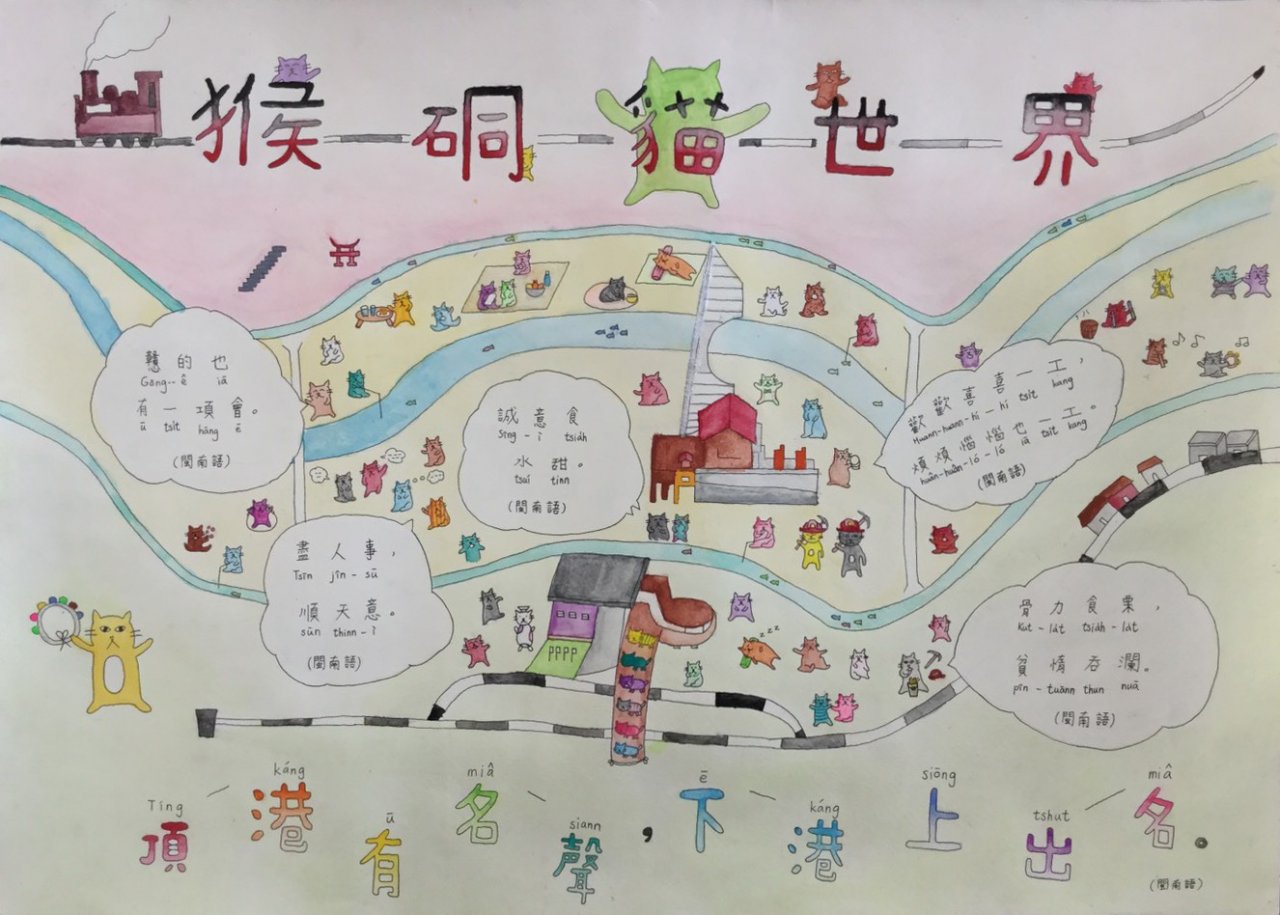 猴硐貓世界
戇的也
Gōng--ê iā
有一項會。
ū tsi̍t hāng ē
(閩南語)
誠意食
Sîng-ì tsia̍h
水甜。
tsuí tinn
(閩南語)
歡歡喜喜一工，
Huann-huann-hí-hí tsi̍t kang
煩煩惱惱也一工。
huân-huân-ló-ló iā tsi̍t kang
(閩南語)
盡人事，
Tsīn jîn-sū
順天意。
sūn thinn-ì
(閩南語)
骨力食栗，
Kut-la̍t tsia̍h-la̍t
貧惰吞瀾。
pîn-tuānn thun nuā
(閩南語)
zzz
Tíng-káng ū miâ-siann ē-káng siōng tshut-miâ
頂港有名聲，下港上出名。
(閩南語)